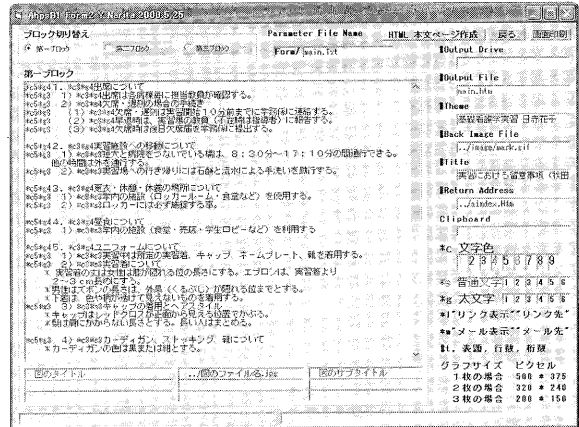 AhpsB1 Form2 Y.Narita 2000.5.25
ブロック切り替え
第一ブロック
第二ブロック
第三ブロック
Parameter File Name
Form/ main.Txt
HTML 本文ページ作成
戻る
画面印刷
第一ブロック
*c5*g41. *c3*g4出席について
*c5*g3 1) *c3*g4出席は各病棟毎に担当教員が確認する。
*c5*g3 2) *c3*g4欠席・遅刻の場合の手続き
*c5*g3 (1) *c3*g4欠席・遅刻は実習開始10分前までに学務係に連絡する。
*c5*g3 (2) *c3*g4早退時は、実習場の教員(不在時は指導者)に報告する。
*c5*g3 (3) *c3*g4欠席時は後日欠席届を学務係に提出する。
*c5*g42. *c3*g4実習施設への移動について
*c5*g3 1) *c3*g3短大と病院をつないでいる橋は、8:30分~17:10分の間通行できる。
他の時間は外を通行する。
*c5*g3 2) *c3*g3実習場への行き帰りには石鹸と流水による手洗いを励行する。
*c5*g43. *c3*g4更衣・休憩・休養の場所について
*c5*g3 1) *c3*g3学内の施設(ロッカールーム・食堂など)を使用する。
*c5*g3 2) *c3*g3ロッカーには必ず施錠する事。
*c5*g44. *c3*g4昼食について
*c5*g3 1) *c3*g3学内の施設(食堂・売店・学生ロビーなど)を利用する
*c5*g45. *c3*g4ユニフォームについて
*c5*g3 1) *c3*g3実習中は所定の実習着、キャップ、ネームプレート、靴を着用する。
*c5*g3 2) *c3*g3実習着について
* 実習着の丈は女性は膝が隠れる位の長さにする。エプロンは、実習着より
2~3cm長めにする。
*男性はズボンの長さは、外果(くるぶし)が隠れる位までとする。
*下着は、色や柄が透けて見えないものを着用する。
*c5*g3 3) *c3*g3キャップの着用とヘアスタイル
*キャップはレッドクロスが正面から見える位置でかぶる。
*髪は肩にかからない長さとする。長い人はまとめる。
*c5*g3 4) *c3*g3カーディガン、ストッキング、靴について
*カーディガンの色は黒または紺とする。
図のタイトル
../図のファイル名.jpg
図のサブタイトル
$Output Drive
$Output File
main.htm
$Theme
基礎看護学実習 日赤花子
$Back Image File
../image/mark.gif
$Title
実習における留意事項
$Return Address
../aindex.Htm
Clipboard
*c 文字色
1 2 3 4 5 6 7 8 9
*s 普通文字 1 2 3 4 5 6
*g 太文字 1 2 3 4 5 6
*l"リンク表示""リンク先"
*m"メール表示""メール先"
$t,表題,行数,桁数
グラフサイズ ピクセル
1枚の場合 500 * 375
2枚の場合 320 * 240
3枚の場合 200 * 150